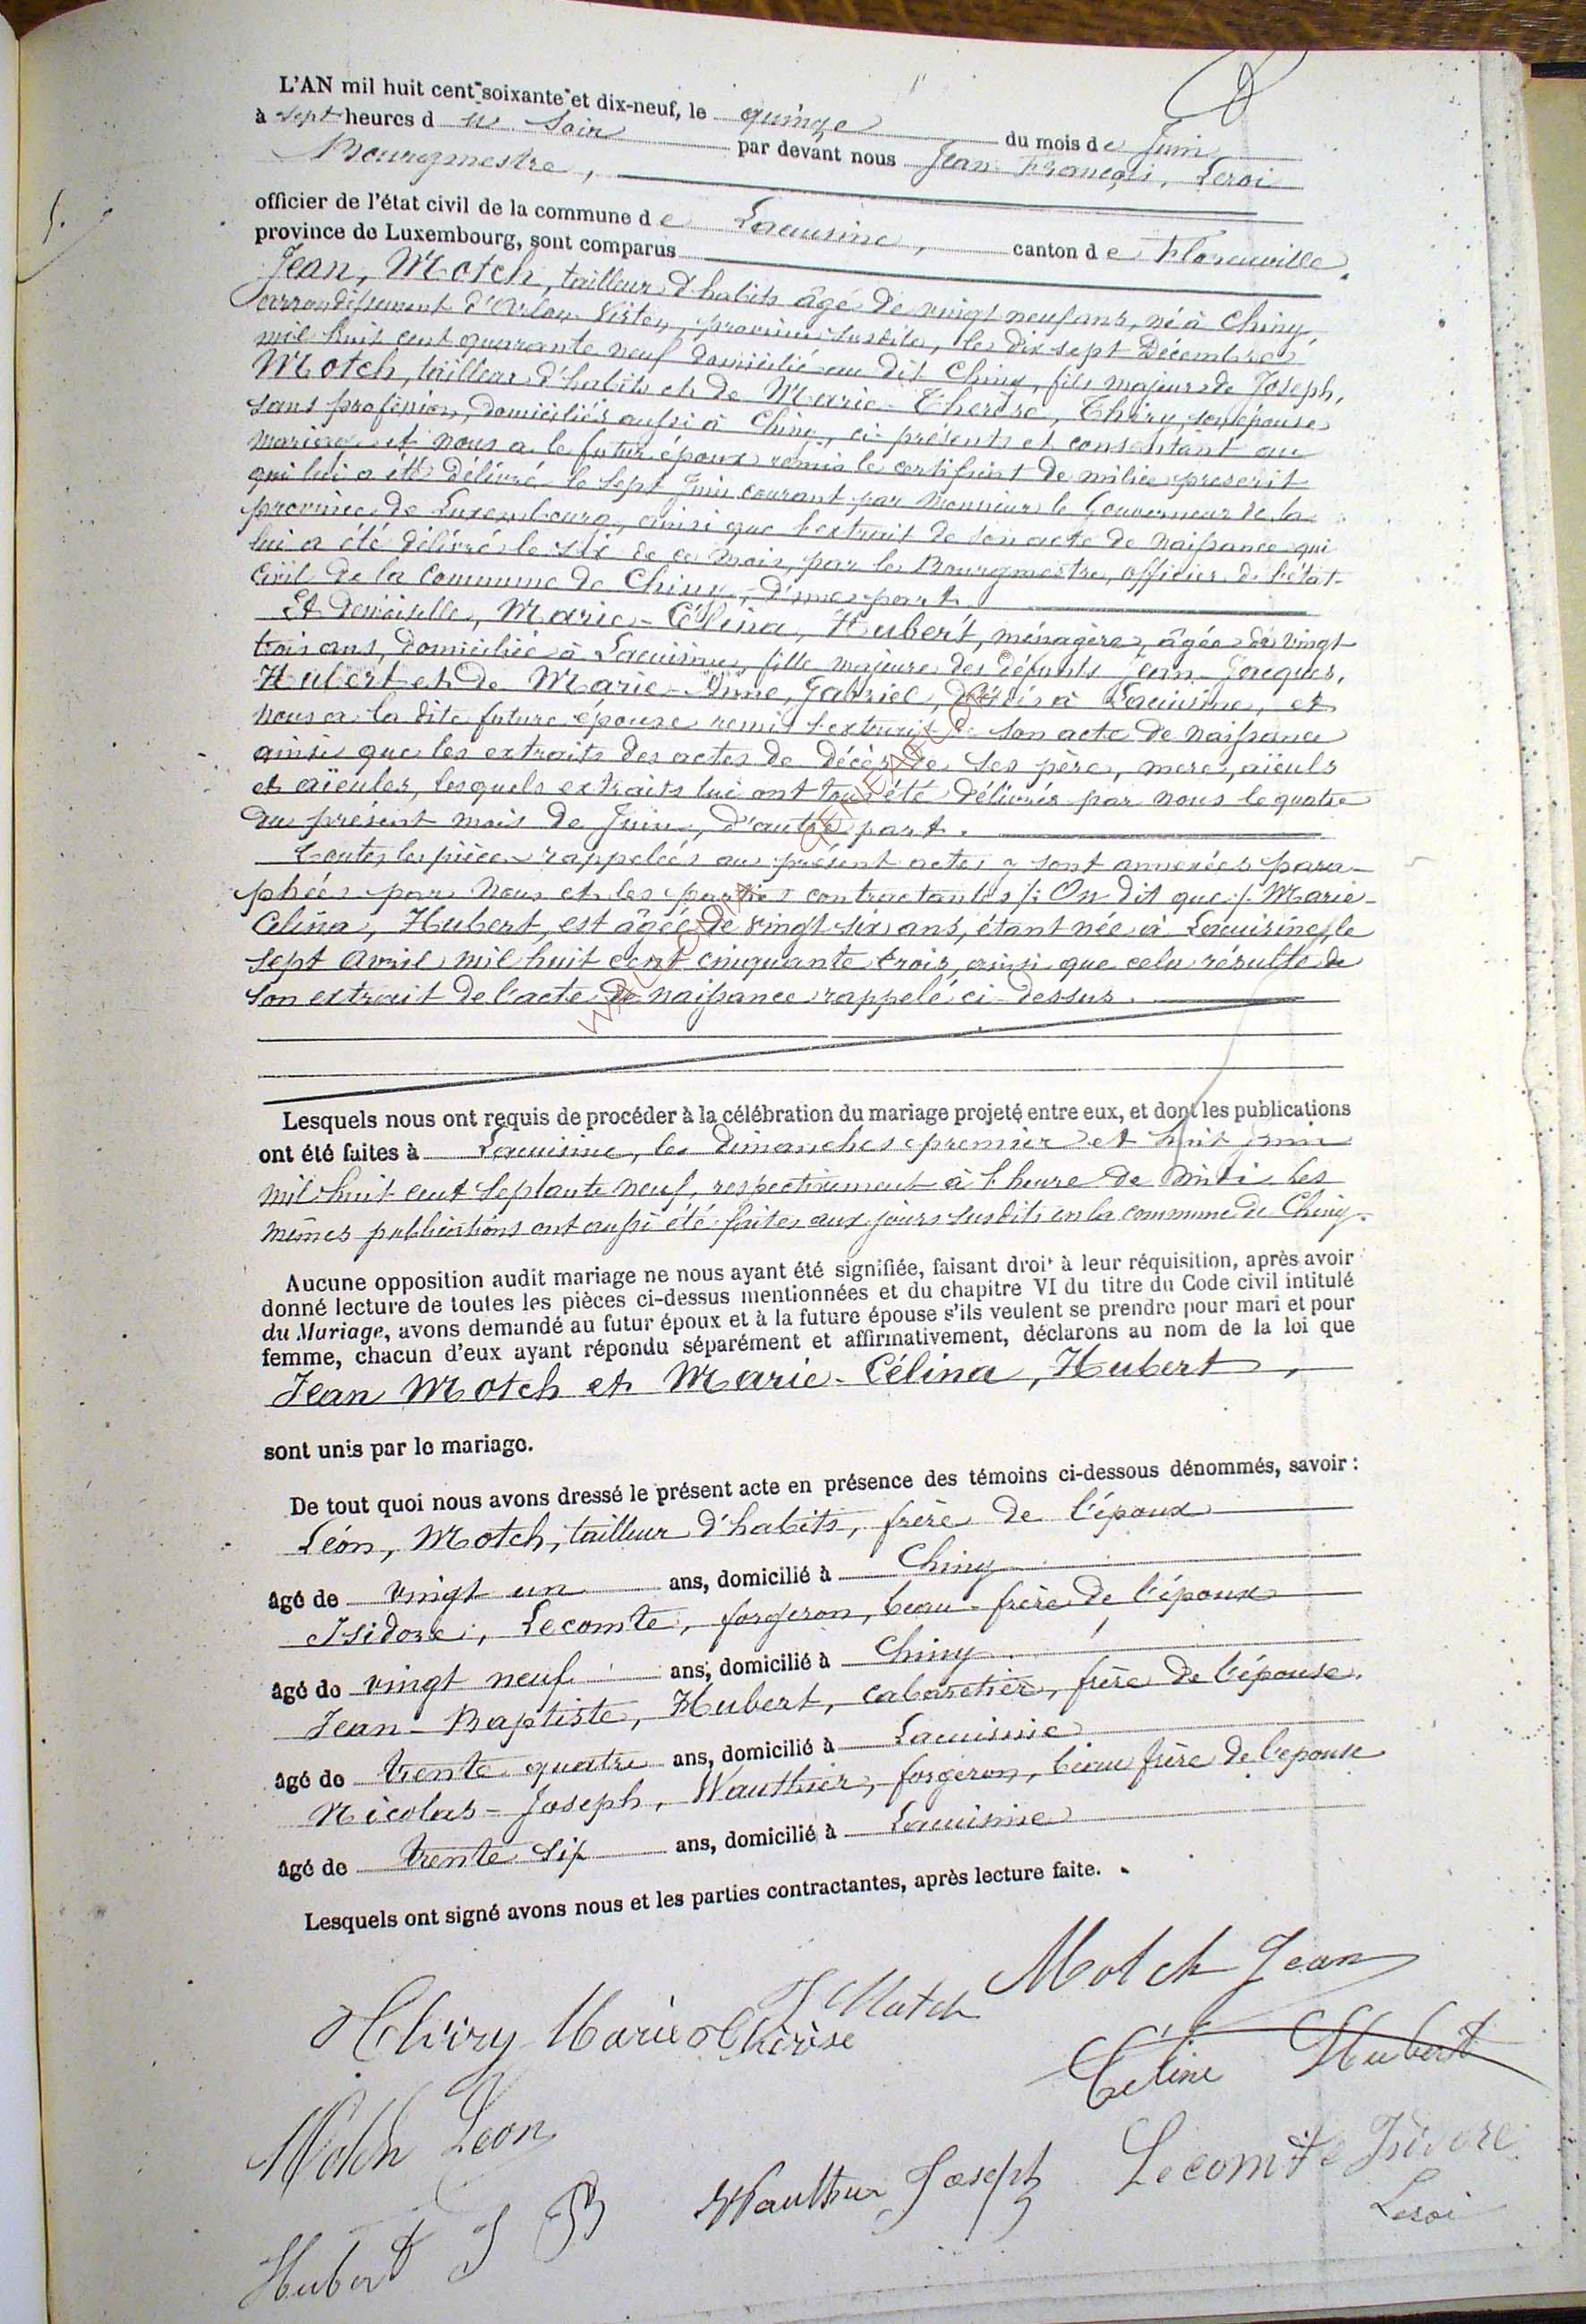 L'AN mil huit cent soixante et dix-neuf, le quinze du mois de Juin
à sept heures du Soir par devant nous Jean François, Leroi
Bourgmestre,
officier de l'état civil de la commune de Lacuisine, canton de Florenville,
province de Luxembourg, sont comparus
Jean, Motch, tailleur d'habits âgé de vingt neuf ans, né à Chiny
arrondissement d'Arlon-Virton, province susdite, le dix sept Décembre
mil huit cent quarante neuf domicilié au dit Chiny, fils majeur de Joseph,
Motch, tailleur d'habits et de Marie-Therèse, Thiry, son épouse
sans profession, domiciliés aussi à Chiny, ci-présents et consentant au
mariage et nous a le futur époux remis le certificat de milice prescrit
qui lui a été délivré le sept Juin courant par Monsieur le Gouverneur de la
province de Luxembourg, ainsi que l'extrait de son acte de naissance qui
lui a été délivré le six de ce mois, par le Bourgmestre, officier de l'état-
Civil de la Commune de Chiny, d'une part.
Et demoiselle, Marie-Célina, Hubert, ménagère, âgée de vingt
trois ans, domiciliée à Lacuisine, fille majeure des défunts Jean-Jacques,
Hubert et de Marie-Anne, Gabriel, décédés à Lacuisine, et
nous a la dite future épouse remis l'extrait de son acte de naissance
ainsi que les extraits des actes de décès de ses père, mère, aïeuls
et aïeules, lesquels extraits lui ont tous été délivrés par nous le quatre
du présent mois de Juin, d'autre part.
Toutes les pièces rappelées au présent acte, y sont annexées para-
phées par nous et les parties contractantes /: On dit que :/ Marie-
Célina, Hubert, est âgée de vingt-six ans, étant née à Lacuisine, le
sept avril mil huit cent cinquante trois, ainsi que cela résulte de
son extrait de l'acte de naissance rappelé ci-dessus.
Lesquels nous ont requis de procéder à la célébration du mariage projeté entre eux, et dont les publications
ont été faites à Lacuisine, les dimanches premier et huit juin
mil huit cent septante neuf, respectivement à l'heure de midi, les
mêmes publications ont aussi été faites aux jours susdits en la commune de Chiny.
Aucune opposition audit mariage ne nous ayant été signifiée, faisant droit à leur réquisition, après avoir
donné lecture de toutes les pièces ci-dessus mentionnées et du chapitre VI du titre du Code civil intitulé
du Mariage, avons demandé au futur époux et à la future épouse s'ils veulent se prendre pour mari et pour
femme, chacun d'eux ayant répondu séparément et affirmativement, déclarons au nom de la loi que
Jean Motch et Marie-Célina, Hubert,
sont unis par le mariage.
De tout quoi nous avons dressé le présent acte en présence des témoins ci-dessous dénommés, savoir :
Léon, Motch, tailleur d'habits, frère de l'époux
âgé de vingt un ans, domicilié à Chiny
Isidore, Lecomte, forgeron, beau-frère de l'époux
âgé de vingt neuf ans, domicilié à Chiny.
Jean-Baptiste, Hubert, cabaretier, frère de l'épouse.
âgé de trente quatre ans, domicilié à Lacuisine
Nicolas-Joseph, Wauthier, forgeron, beau frère de l'epouse
âgé de trente six ans, domicilié à Lacuisine
Lesquels ont signé avons nous et les parties contractantes, après lecture faite.
J Motch Motch Jean
Thiry Marie Thérèse
Céline Hubert
Motch Leon
Wauthier Joseph Lecomte Isidore
Hubert J B Leroi